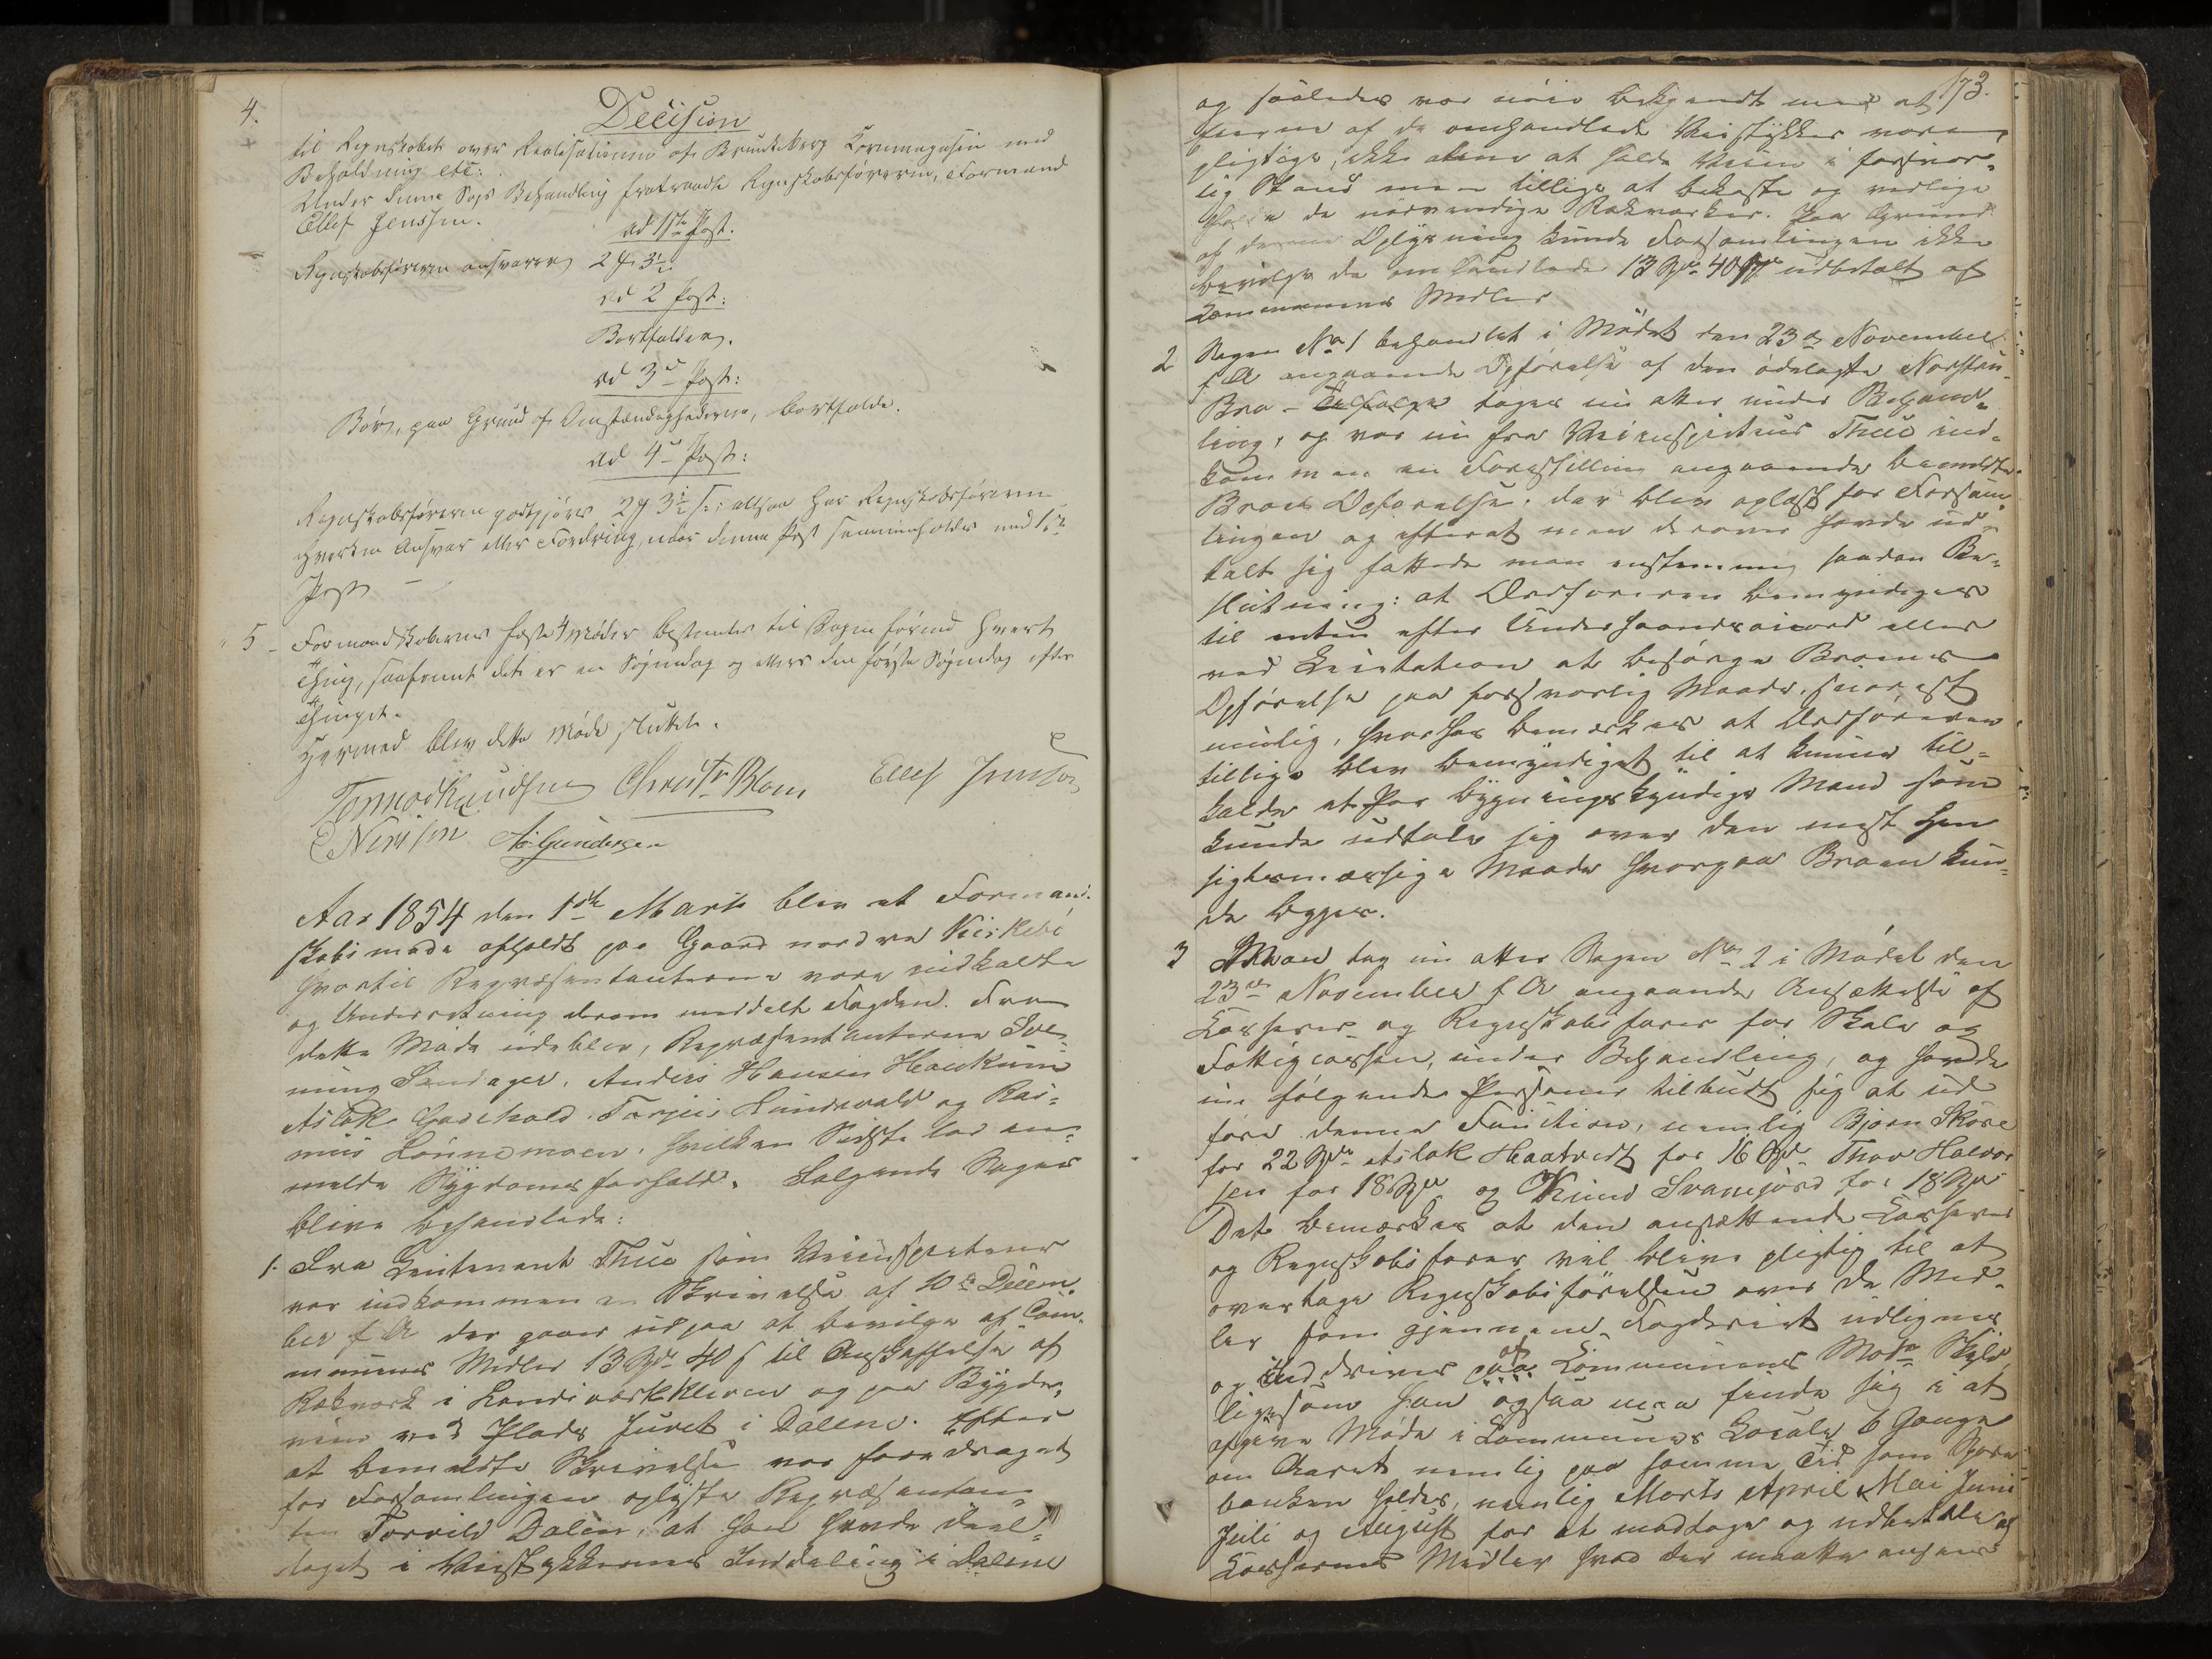 4.
Decision
til Regnskabet over Realisationen af Brunkeberg Kornmagasin med
Beholdning etc:
Under denne Sags Behandling fratraadte Regnskabsføreren, Formand
Ellef Jenssen.
ad 1ste Post.
Regnskabsføreren ansvarer 2 3½
ad 2 Post:
Bortfalder.
ad 3die Post:
Bør, paa Grund af Omstændighederne, bortfalde.
ad 4de Post:
Regnskabsføreren godtgjøres 2 3½ s: altsaa har Regnskabsføreren
hverken Ansvar eller Fordring, naar denne Post sammenholdes med 1ste
Post
5 - Formandskabernes faste 4 Møder bestemtes til Dagen førend hvert
Thing, saafremt dette er en Søgnedag og ellers den første Søgnedag efter
Thinget.
Hermed blev dette Møde sluttet.
Tormod Knudsen Christn Blom Ellef Jensson
Nerisen A. Gundersen
Aar 1854 den 1ste Marts blev et Formand-
skabsmøde afholdt paa Gaard nordre
hvortil Repræsentanterne vare indkaldte
og Underretning derom meddelt Fogden. Fra
dette Møde udeblev, Repræsentanterne Sve-
nung Sundager, Anders Hansen Haukum
Aslak Torjus Hundevald og Ras-
mus Lønnemoen, hvilken Sidste lod an-
melde Sygdomsforfald. Følgende Sager
bleve behandlede:
1. Fra Leutenant Thue som Veiinspecteur
var indkommen en Skrivelse af 10de Decem-
ber f A der gaaer ud paa at bevilge af Com-
munens Midler 13 Spd 40 s til Anskaffelse af
Rækværk i og paa Bygde-
veien ved Plads Juvet i Dalene. Efter
at bemeldte Skrivelse var foredraget
for Forsamlingen oplyste Repræsentan-
ten Torvild Dalen, at han havde deel-
taget i Veistykkernes Inddeling i Dalene
173.
og saaledes var nøie bekjendt med at
Eierne af de omhandlede Veistykker vare
pligtige, ikke alene at holde Veien i forsvar-
lig Stand men tillige at bekoste og vedlige
holde de nødvendige Rækværker. Paa Grund
af denne Oplysning kunde Forsamlingen ikke
bevilge de omhandlede 13 Spd 40 s udbetalt af
Communens Midler
2 Sagen No 1 behandlet i Mødet den 23de November
f A angaaende Opførelse af den ødelagte
Bro - Tilfølge toges nu atter under Behand-
ling, og var nu fra Veiinspecteur Thue ind-
kommen en Forestilling angaaende bemeldte
Broes Opførelse, der blev oplæst for Forsam-
lingen og efterat man derover havde ud-
talt sig fattede man enstemmig saadan Be-
slutning: at Ordføreren bemyndiges
til enten efter Underhaandsaccord eller
ved Licitation at besørge Broens
Opførelse paa forsvarlig Maade, snarest
mulig, hvorhos bemærkes at Ordføreren
tillige blev bemyndiget til at kunne til-
kalde et Par bygningskyndige Mænd som
kunde udtale sig over den mest hen-
sigtsmæssige Maade hvorpaa Broen kun-
de bygges.
3 Man tog nu atter Sagen No 2 i Mødet den
23de November f A angaaende Ansættelse af
Casserer og Regnskabsfører for Skole og
Fattigcassen, under Behandling, og havde
nu følgende Personer tilbudt sig at ud
føre denne Function, nemlig Bjørn Skore
for 22 Spd Aslak Haatvedt for 16 Spd Thor Halvor
sen for 18 Spd og Knud Svanejord for 18 Spd
Det bemærkes at den ansættende Casserer
og Regnskabsfører vil blive pligtig til at
overtage Regnskabsførelsen over de Mid-
ler som gjennem Fogderiet udlignes
og inddrives paa af Communens Matr. Skyld
ligesom han ogsaa maa finde sig i at
afgive Møde i Communens Locale 6 Gange
om Aaret nemlig paa samme Tid som Spare
banken holdes, nemlig Marts April Mai Juni
Juli og August for at modtage og udbetale af
Cassernes Midler hvad der maatte ansees